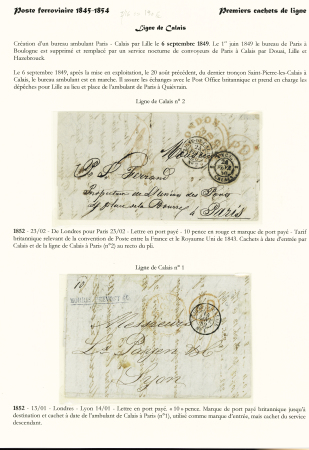 Poste ferroviaire 1845-1854
Premiers cachets de ligne
Ligne de Calais
Création d'un bureau ambulant Paris - Calais par Lille le 6 septembre 1849. Le 1er juin 1849 le bureau de Paris à
Boulogne est supprimé et remplacé par un service nocturne de convoyeurs de Paris à Calais par Douai, Lille et
Hazebrouck.
Le 6 septembre 1849, après la mise en exploitation, le 20 août précédent, du dernier tronçon Saint-Pierre-les-Calais à
Calais, le bureau ambulant est en marche. Il assure les échanges avec le Post Office britannique et prend en charge les
dépêches pour Lille au lieu et place de l'ambulant de Paris à Quiévrain.
Ligne de Calais n° 2
Monsieur
P. S. Ferrand
Inspecteur Des Ponts
place de la Bourse
à Paris
1852 - 23/02 - De Londres pour Paris 25/02 - Lettre en port payé - 10 pence en rouge et marque de port payé - Tarif
britannique relevant de la convention de Poste entre la France et le Royaume Uni de 1843. Cachets à date d'entrée par
Calais et de la ligne de Calais à Paris (n°2) au recto du pli.
Ligne de Calais n° 1
Messieurs
Payen & C
Lyon
1852 - 13/01 - Londres - Lyon 14/01 - Lettre en port payé. « 10 » pence. Marque de port payé britannique jusqu'à
destination et cachet à date de l'ambulant de Calais à Paris (n°1), utilisé comme marque d'entrée, mais cachet du service
descendant.